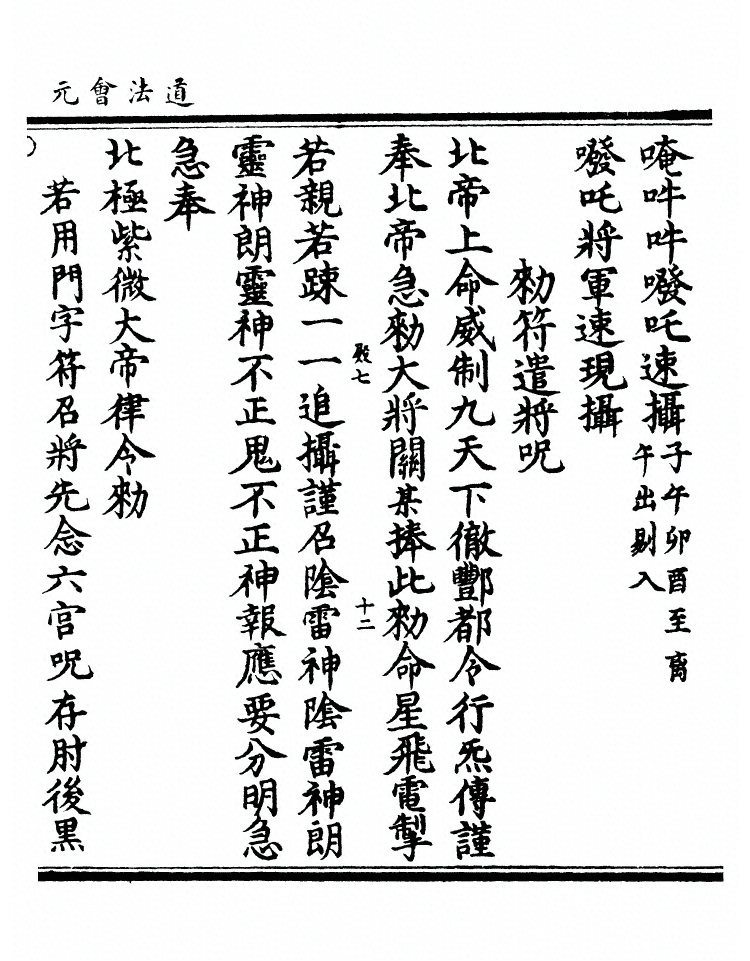 道法會元
唵吽吽嘬吒速攝子午卯酉至离
午出剔入
嘬吒將軍速現攝
勑符遣將呪
北帝上命威制九天下徹酆都令行炁傳謹
奉北帝急勑大將關某捧此勑命星飛電掣
殿七
十二
若親若踈一一追攝謹召陰雷神陰雷神朗
靈神朗靈神不正鬼不正神報應要分明急
急奉
北極紫微大帝律令勑
若用門字符召將先念六宫呪存肘後黑